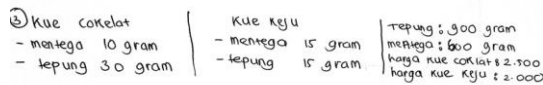 ③ Kue cokelat
- mentega 10 gram
- tepung 30 gram
Kue Keju
- mentega 15 gram
- tepung 15 gram
Tepung : 900 gram
mentega : 600 gram
harga kue coklat : 2.500
harga kue keju : 2.000